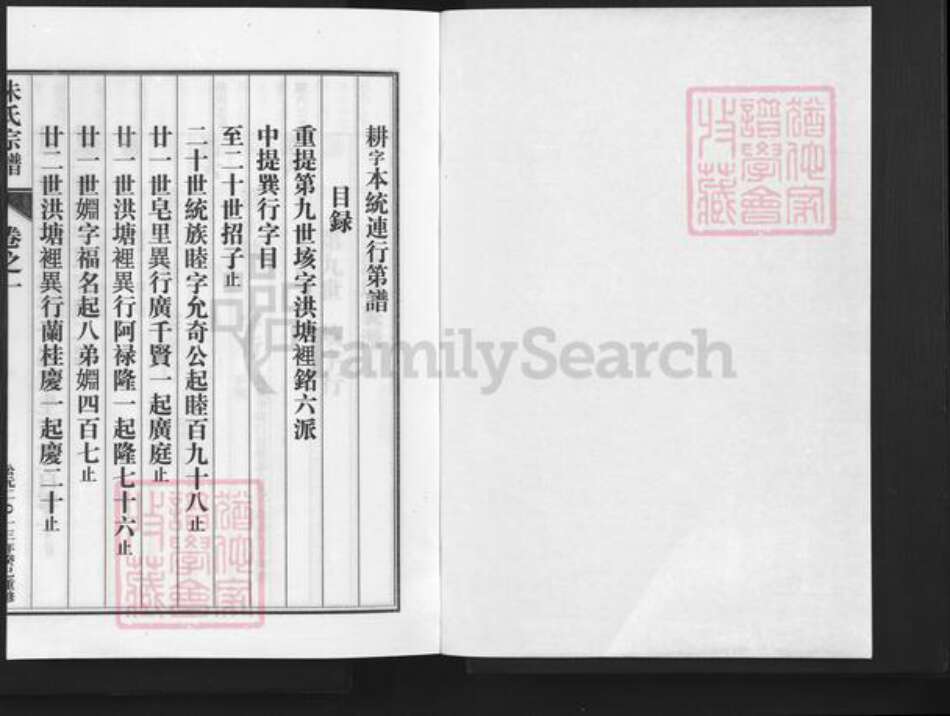 耕字本統連行第譜
目録
重提第九世垓字洪塘裡銘六派
中提巽行字目
至二十世招子止
二十世統族睦字允奇公起睦百九十八止
廿一世皂里異行廣千賢一起廣庭止
廿一世洪塘裡異行阿禄隆一起隆七十六止
廿一世嫺字福名起八弟嫺四百七止
廿二世洪塘裡異行蘭桂慶一起慶二十止
朱氏宗譜 卷之一
FamilySearch